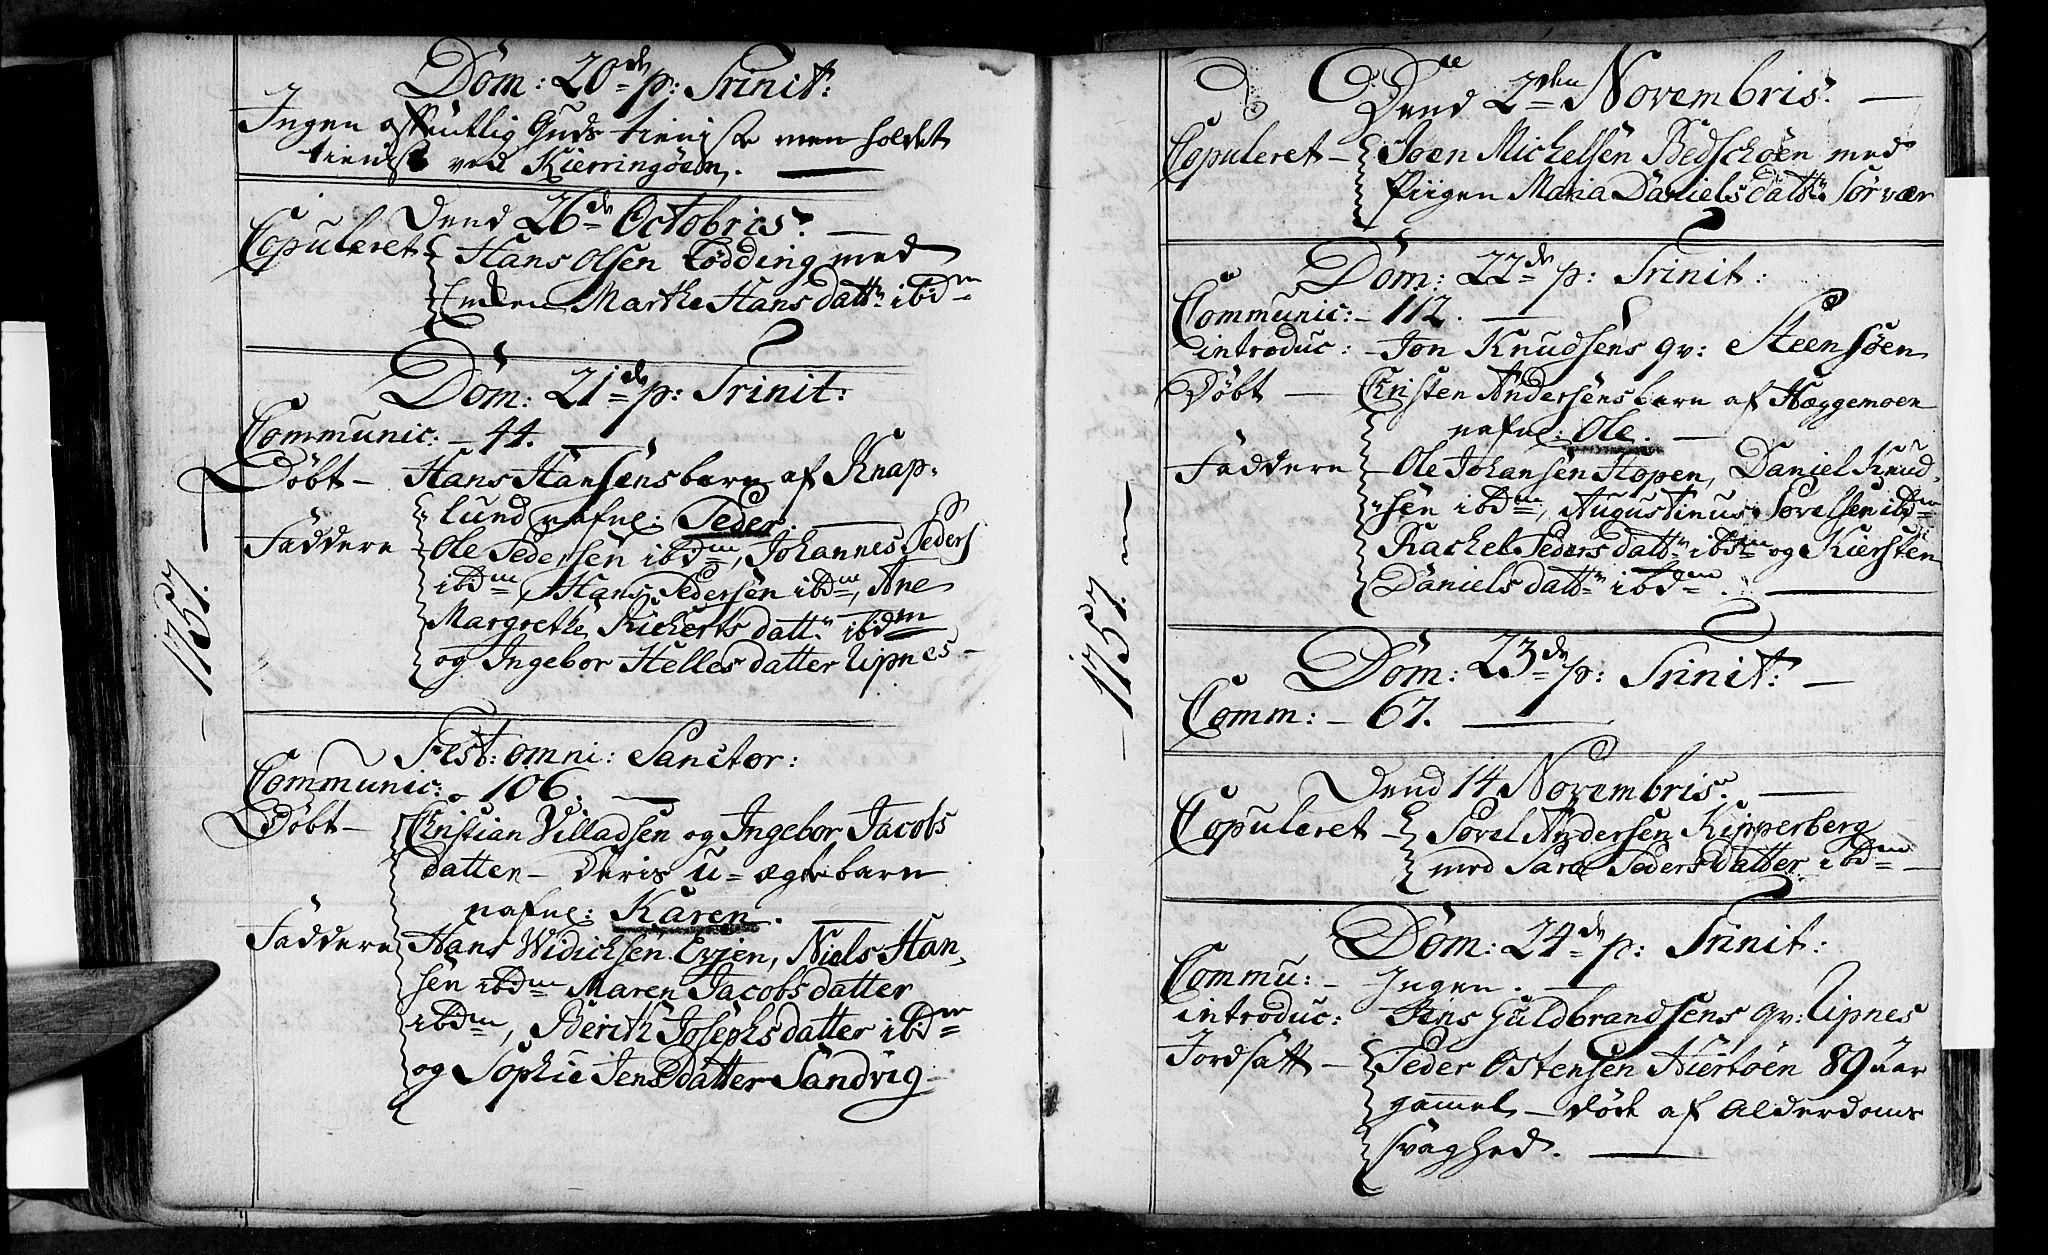 Dom: 20de p: Trinit:
Ingen offentlig Guds tieniste men holdet
tieniste ved Kierringöen.
Dend 26de Octobris.
Copuleret Hans Olsen Lödding med
Enken Marthe Hans datt: ibdm
Dom: 21de p: Trinit:
Communic: - 44.
Döbt - Hans Hansens barn af Knap-
lund nafnl: Peder.
Faddere - Ole Pedersen ibdm, Johannes Peders
ibdm, Hans Pedersen ibdm, Ane
Margrethe Richerts datt: ibdm
og Ingebor Helles datter Lipnes -
- 1757. -
Fest: omni: Sanctor:
Communic: - 106.
Döbt - Christian Villadsen og Ingebor Jacobs
datter - Deris u-ægte barn
nafnl: Karen.
Faddere Hans Widichsen Evjen, Niels Han-
sen ibdm Maren Jacobs datter
ibdm, Berith Josephs datter ibdm
og Sophie Jens datter Sandvig
Dend 2den Novembris.
Copuleret - Joen Michelsen Bedschöen med
Piigen Maria Daniels datt: Sörvær
Dom: 22de p: Trinit:
Communic: - 112.
introduc: - Jon Knudsens qv: Steensöen
Döbt - Christen Andersens barn af Hæggemoen
nafnl: Ole.
Faddere - Ole Johansen Hopen, Daniel Knud-
sen ibdm, Augustinus Sörelsen ibdm
Rachel Peders datt: ibdm og Kiersten
Daniels datt: ibdm.
- 1757. -
Dom: 23de p: Trinit: -
Comm: - 67.
Dend 14 Novembris.
Copuleret - Sorel Andersen Kipperberg
med Sara Peders datter ibdm
Dom: 24de p: Trinit:
Commu: - Ingen.
introduc: Guldbrandsens qv: Lipnes
Jordsatt - Peder Ostensen Hiertöen 89 aar
gammel - döde af Alderdoms
svaghed.